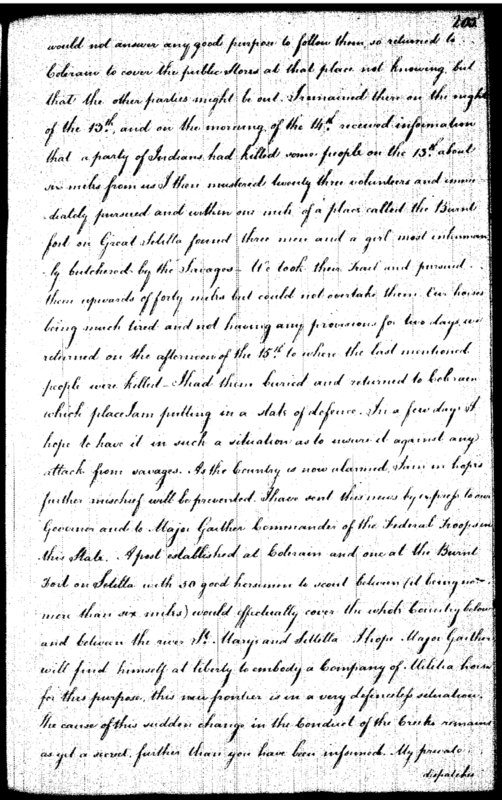 203
would not answer any good purpose to follow them, so returned to
Colerain to cover the public stores at that place not knowing but
that the other parties might be out. I remained there on the night
of the 13th, and on the morning of the 14th received information
that a party of Indians had killed some people on the 13th about
six miles from us I then mustered twenty three volunteers and imme
-diately pursued and within one mile of a place called the Burnt
fort on Great Sitilla found three men and a girl most inhuman
-ly butchered by the Savages — We took their Trail and pursued
them upwards of forty miles but could not overtake them. Our horses
being much tired and not having any provisions for two days, we
returned on the afternoon of the 15th to where the last mentioned
people were killed — I had them buried and returned to Colerain
which place I am putting in a state of defence. In a few days I
hope to have it in such a situation as to insure it against any
attack from savages. As the Country is now alarmed, I am in hopes
further mischief will be prevented. I have sent this news by express to our
Governor and to Major Gaither Commander of the Federal Troops in
this State. A post established at Colerain and one at the Burnt
Fort on Sitilla with 50 good horsemen to scout between (it being no
more than six miles) would effectually cover the whole Country below
and between the river St. Mary's and Sitilla I hope Major Gaither
will find himself at liberty to embody a Company of Militia horse
for this purpose, this new frontier is in a very defenceless situation.
The cause of this sudden change in the Conduct of the Creeks remains
as yet a secret, further than you have been informed. My private
dispatches